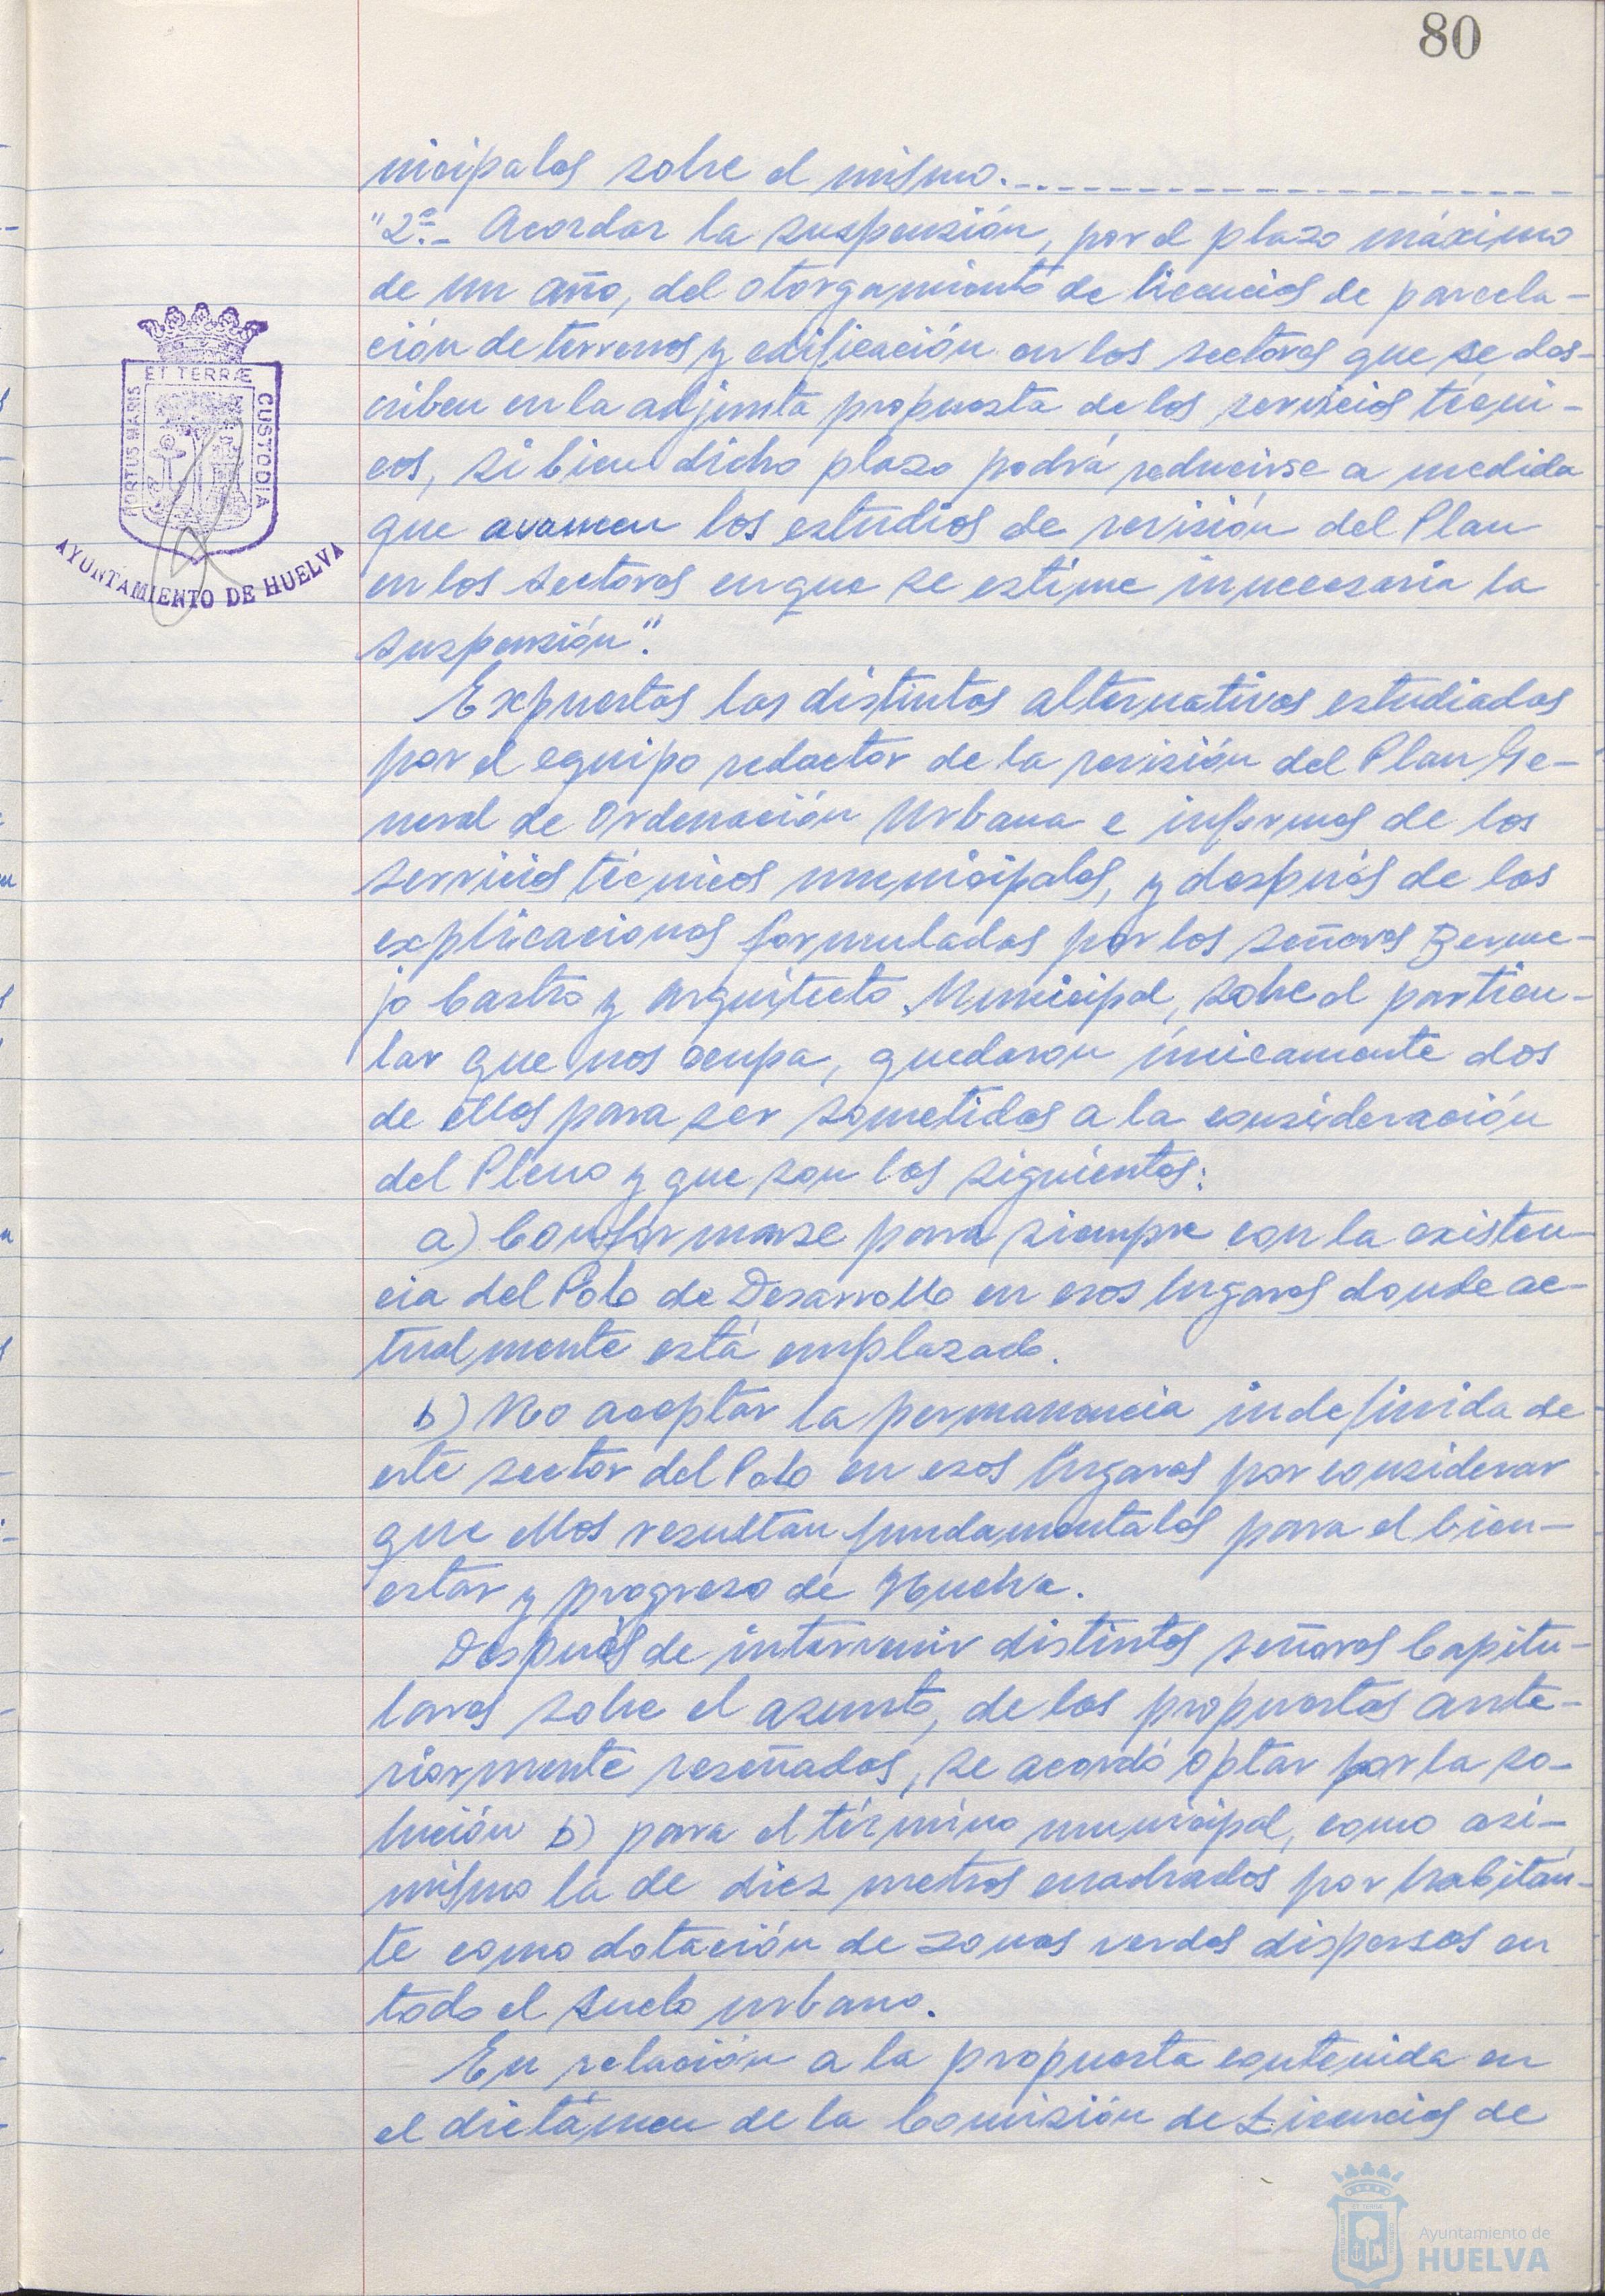 80
nicipales sobre el mismo.
"2º.- Acordar la suspensión, por el plazo máximo
de un año, del otorgamiento de licencias de parcela-
ción de terrenos y edificación en los sectores que se des-
criben en la adjunta propuesta de los servicios técni-
cos, si bien dicho plazo podrá reducirse a medida
que avancen los estudios de revisión del Plan
en los sectores en que se estime innecesaria la
suspensión".
Expuestas las distintas alternativas estudiadas
por el equipo redactor de la revisión del Plan Ge-
neral de Ordenación Urbana e informes de los
servicios técnicos municipales, y después de las
explicaciones formuladas por los señores Berme-
jo Castro y Arquitecto Municipal, sobre el particu-
lar que nos ocupa, quedaron únicamente dos
de ellas para ser sometidas a la consideración
del Pleno y que son las siguientes:
a) Conformarse para siempre con la existen-
cia del Polo de Desarrollo en esos lugares donde ac-
tualmente está emplazado.
b) No aceptar la permanencia indefinida de
este sector del Polo en esos lugares por considerar
que ellos resultan fundamentales para el bien-
estar y progreso de Huelva.
Después de intervenir distintos señores Capitu-
lares sobre el asunto, de las propuestas ante-
riormente reseñadas, se acordó optar por la so-
lución b) para el término municipal, como asi-
mismo la de diez metros cuadrados por habitan-
te como dotación de zonas verdes dispersas en
todo el suelo urbano.
En relación a la propuesta contenida en
el dictámen de la Comisión de Licencias de
PORTUS MARIS ET TERRÆ CUSTODIA
AYUNTAMIENTO DE HUELVA
Ayuntamiento de
HUELVA